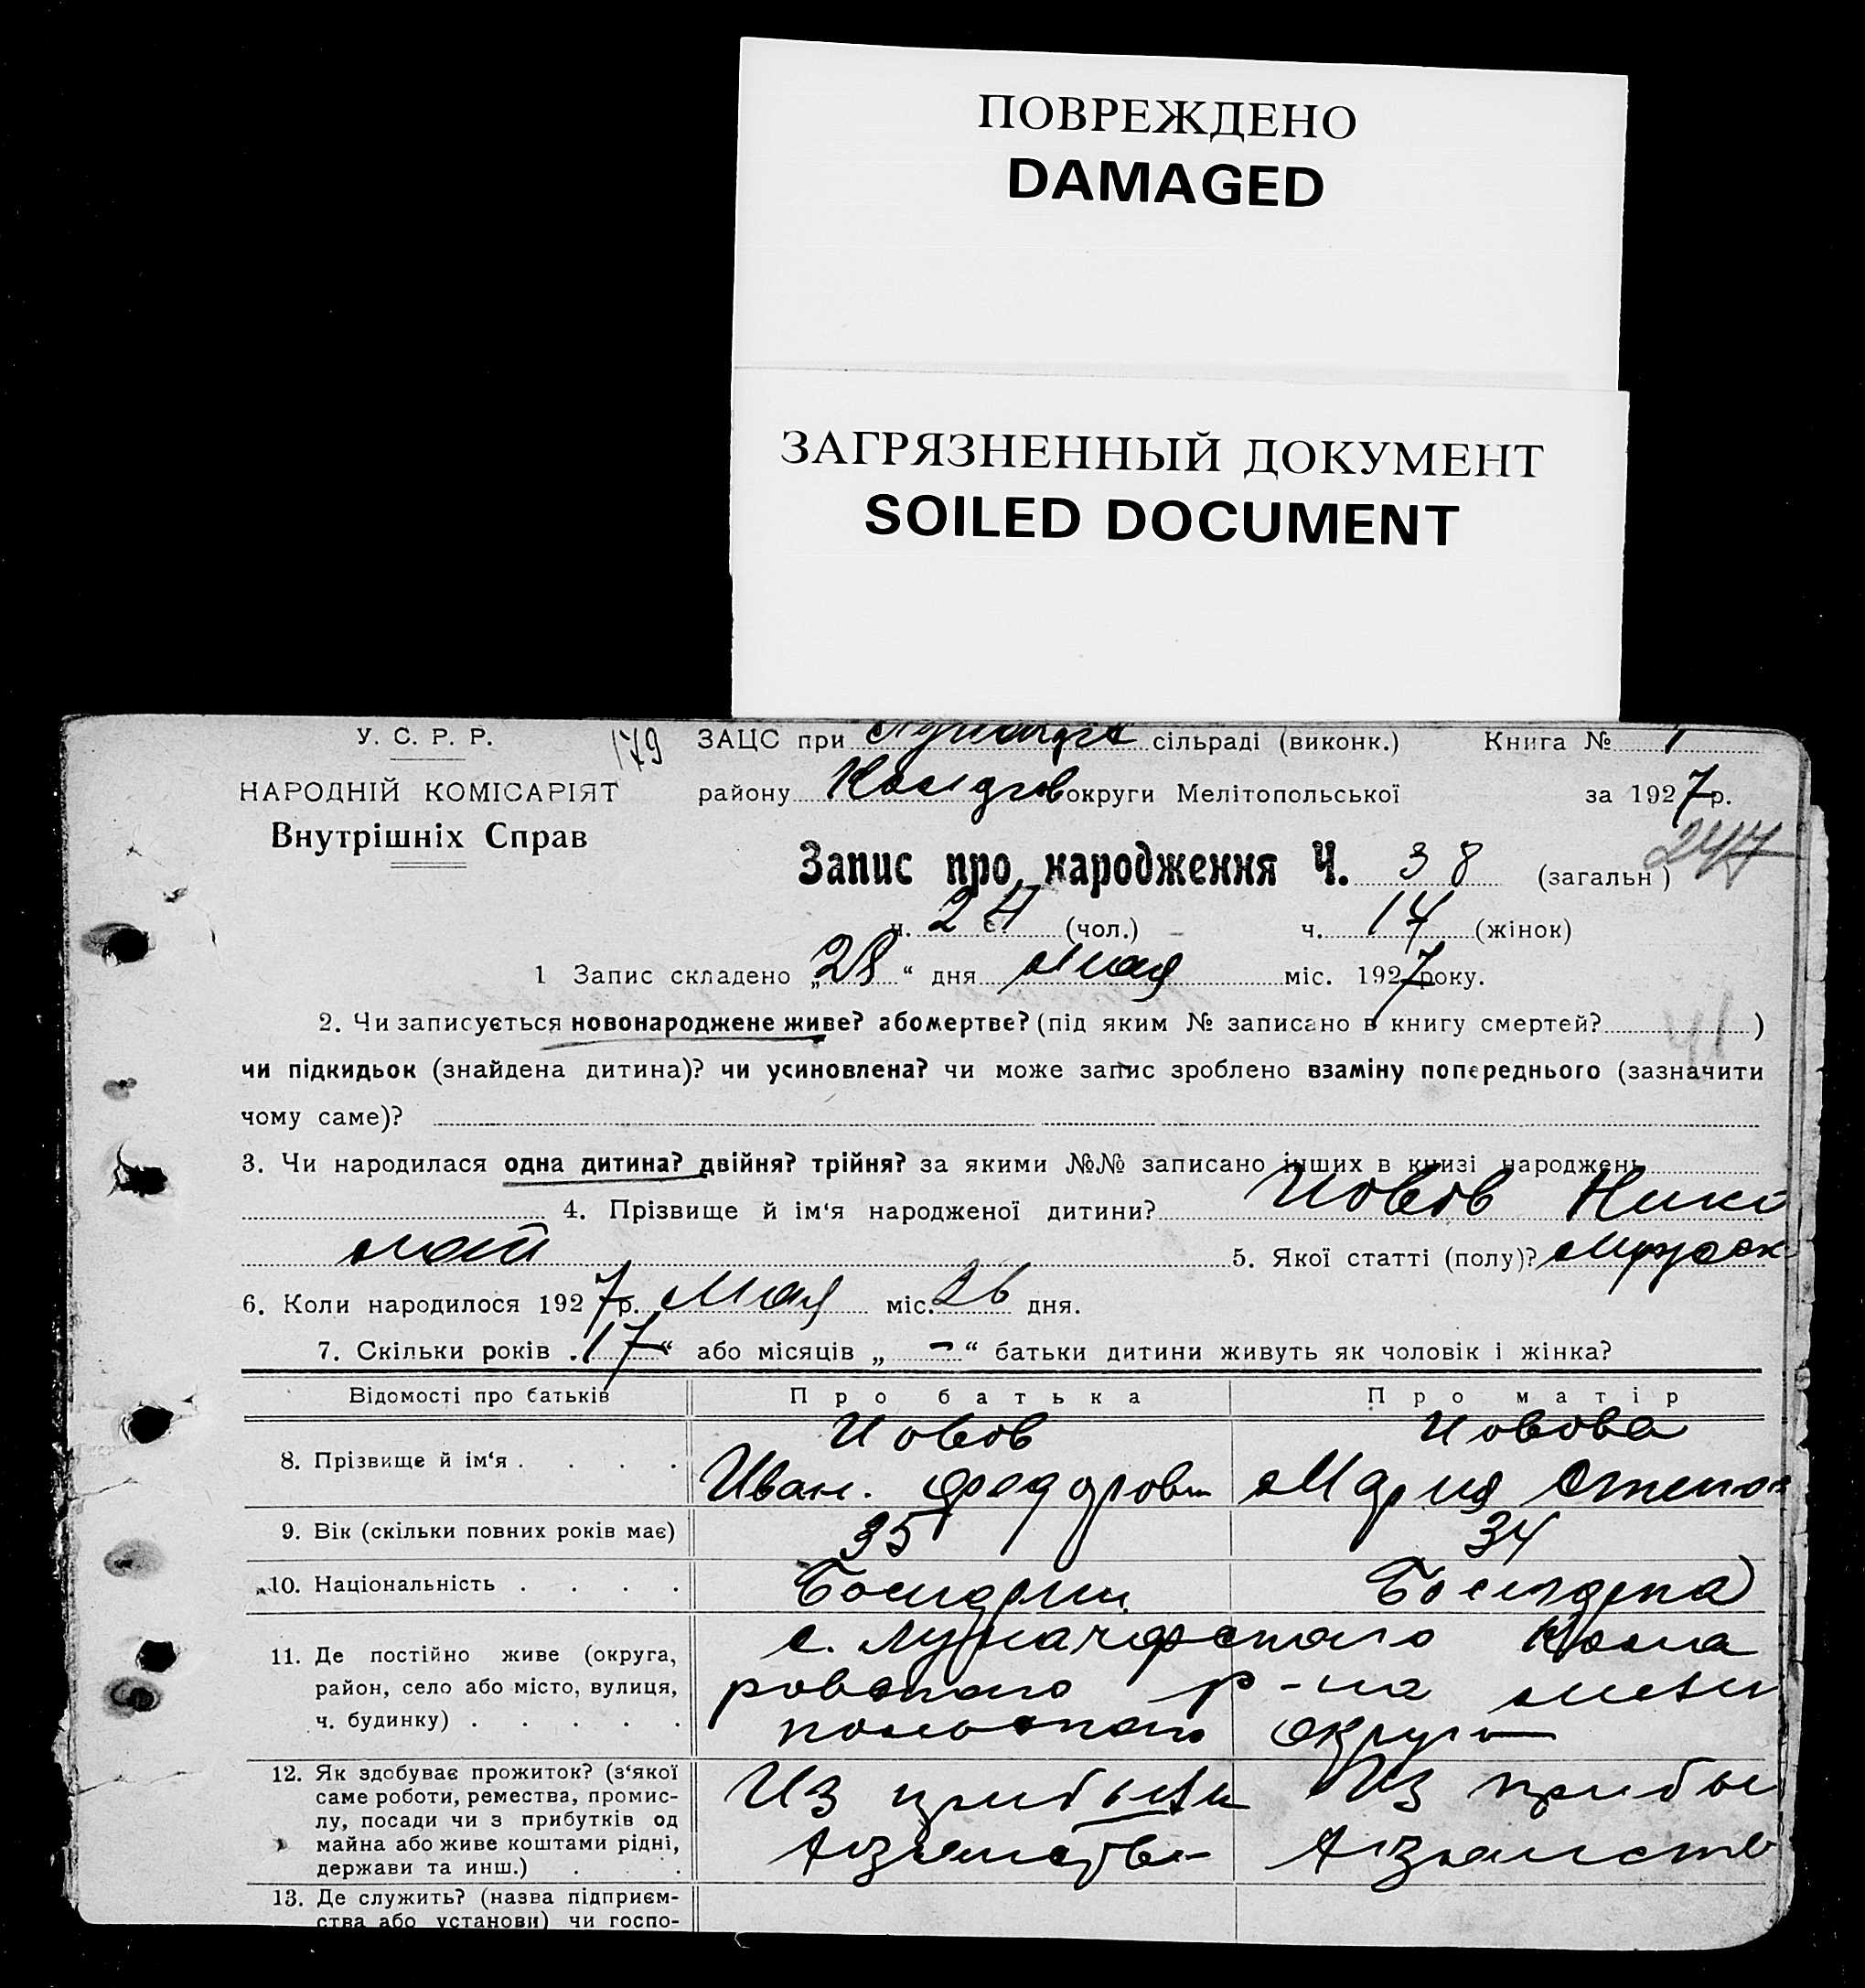 ПОВРЕЖДЕНО
DAMAGED
ЗАГРЯЗНЕННЫЙ ДОКУМЕНТ
SOILED DOCUMENT
У. С. Р. Р. 179 ЗАЦС при сільраді (виконк.) Книга № 1
НАРОДНІЙ КОМІСАРІЯТ району округи Мелітопольської за 1927 р.
Внутрішніх Справ
Запис про народження Ч. 38 (загальн) 247
ч. 24 (чол.) ч. 14 (жінок)
1 Запис складено „28“ дня мая міс. 1927 року.
2. Чи записується новонароджене живе? або мертве? (під яким № записано в книгу смертей? )
чи підкидьок (знайдена дитина)? чи усиновлена? чи може запис зроблено взаміну попереднього (зазначити
чому саме)?
3. Чи народилася одна дитина? двійня? трійня? за якими №№ записано інших в книзі народжень
4. Прізвище й ім‘я народженої дитини? Иовов Нико
лай 5. Якої статті (полу)? Мужск
6. Коли народилося 1927 р. Мая міс. 26 дня.
7. Скільки років „17“ або місяців „ - “ батьки дитини живуть як чоловік і жінка?
Відомості про батьків Про батька Про матір
Иовов Иовова
8. Прізвище й ім‘я . . . .
Иван. Федоров Мария Степан
9. Вік (скільки повних років має) 35 34
10. Національність . . . . Болгарин Болгарка
11. Де постійно живе (округа, с. Луначарского Кола
район, село або місто, вулиця, ровского р-на Мели
ч. будинку) . . . . . польского округа
12. Як здобуває прожиток? (з‘якої
саме роботи, ремества, промис- Из Из прибы
лу, посади чи з прибутків од
майна або живе коштами рідні,
держави та инш.) . . .
13. Де служить? (назва підприєм-
ства або установи) чи госпо-